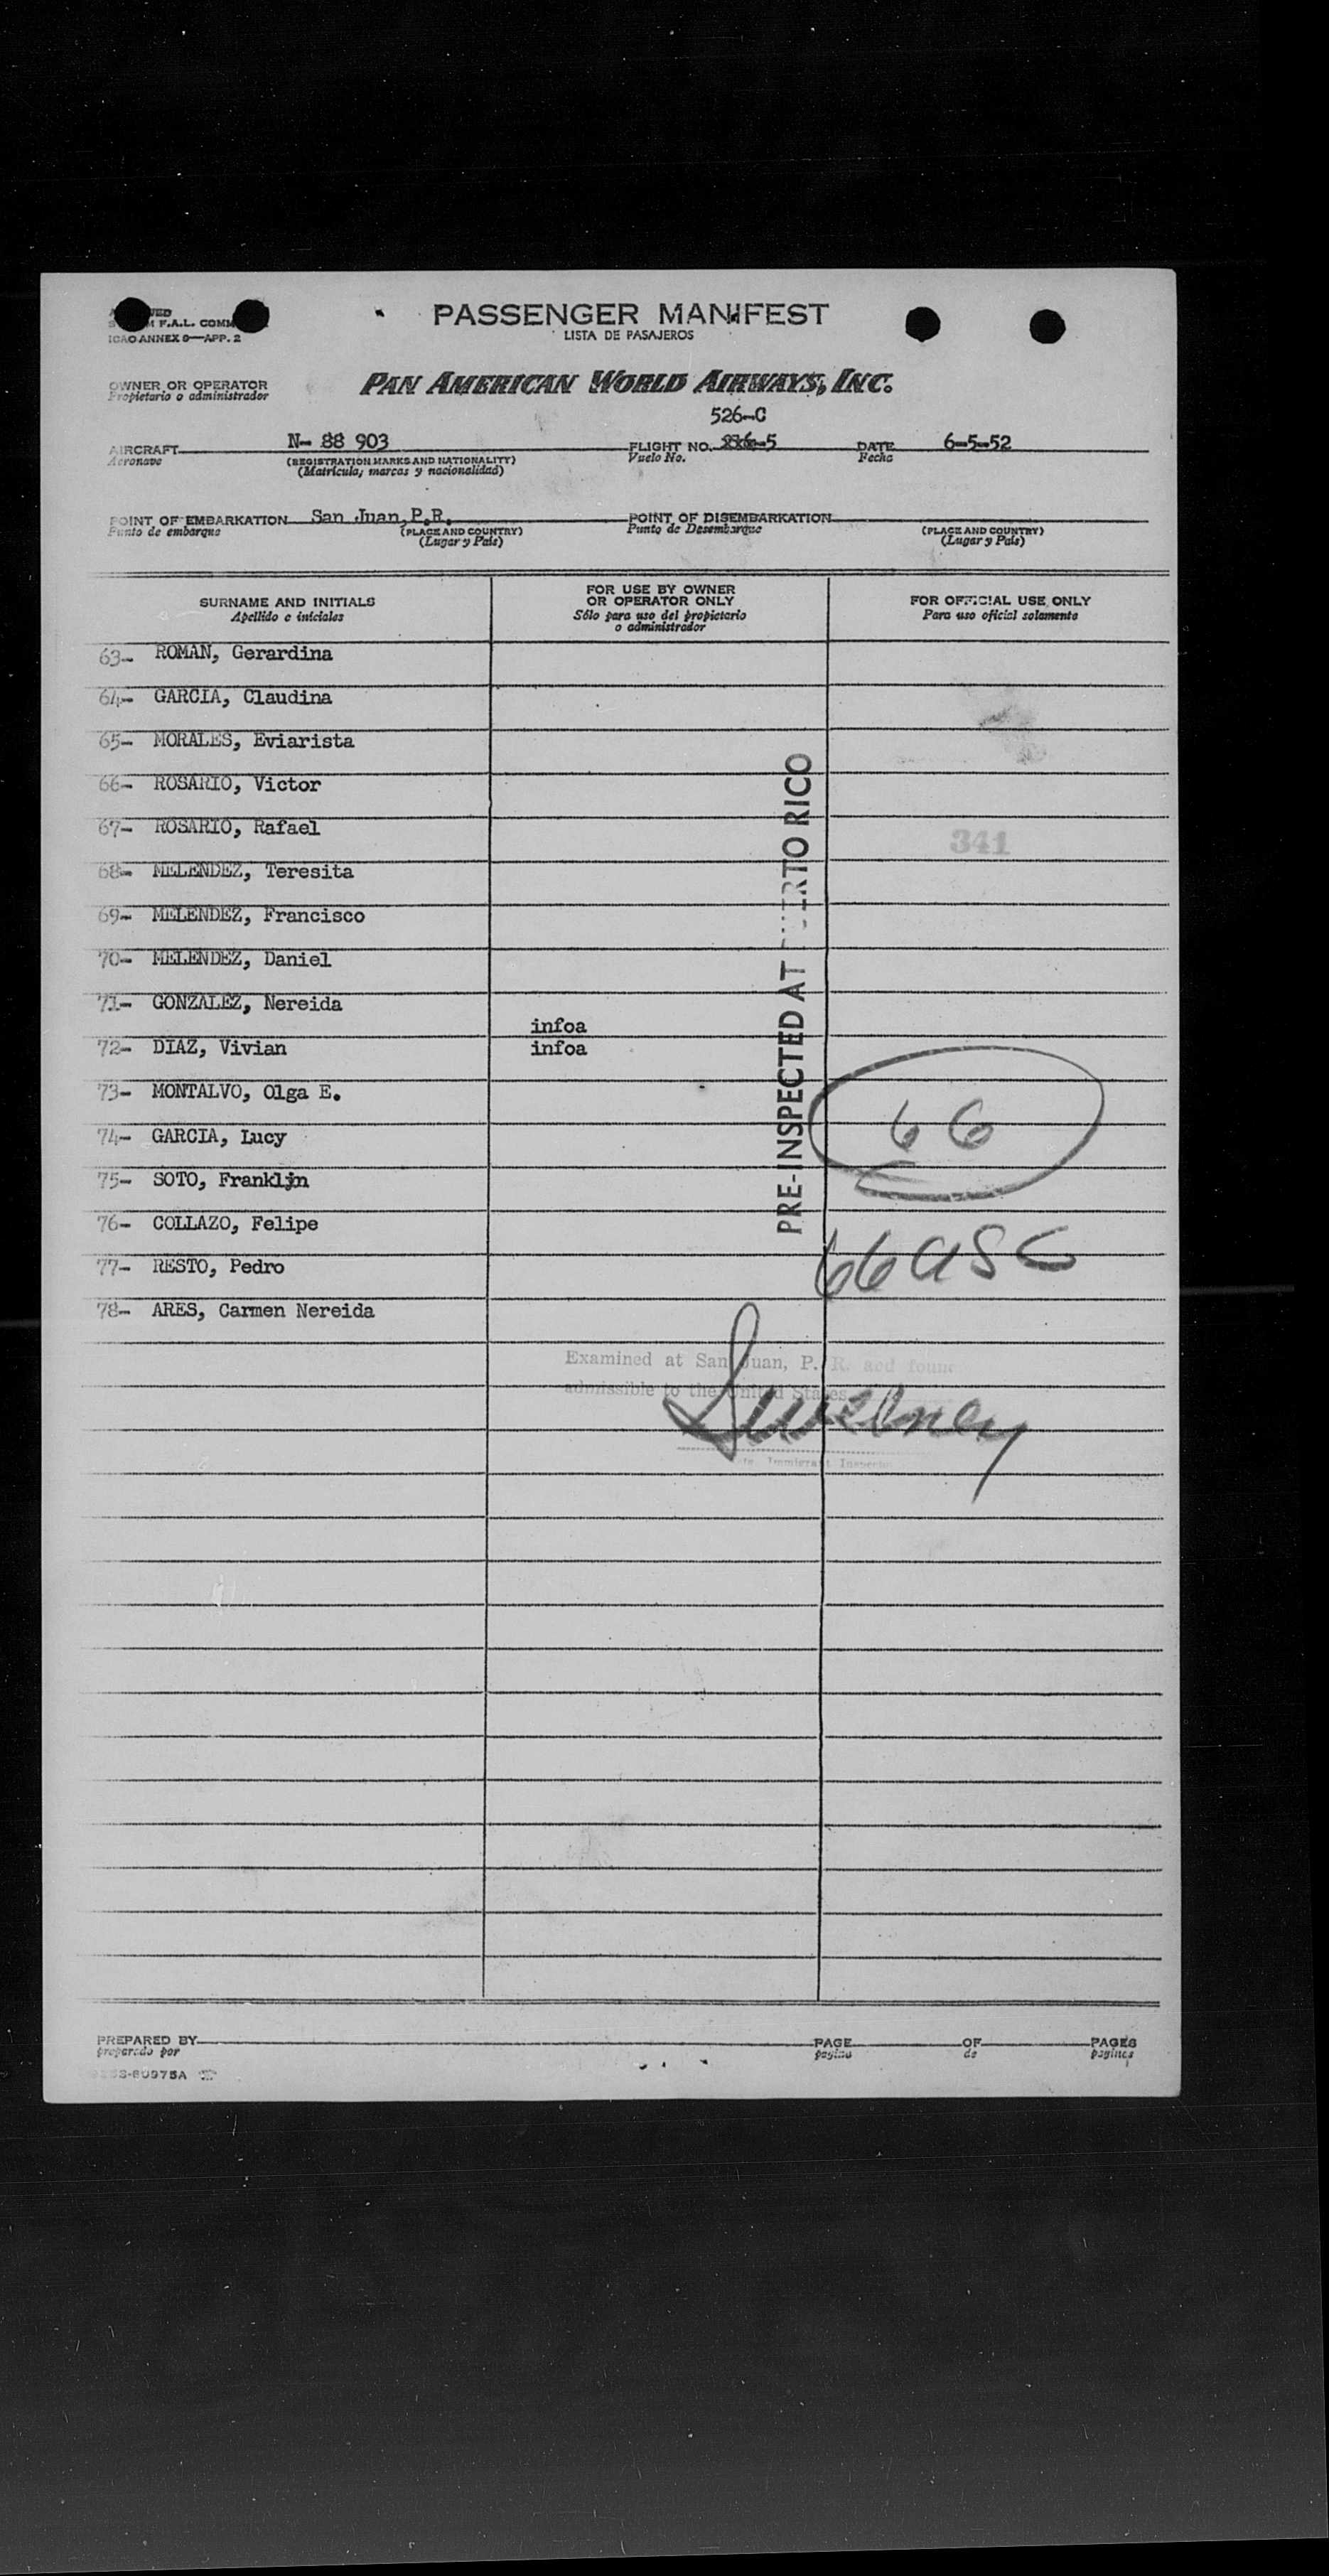 F.A.L. COMM
ICAO ANNEX 9—APP. 2
PASSENGER MANIFEST
LISTA DE PASAJEROS
OWNER OR OPERATOR
Propietario o administrador
PAN AMERICAN WORLD AIRWAYS, INC.
526-C
AIRCRAFT N- 88 903 FLIGHT NO. DATE 6-5-52
Aeronave (REGISTRATION MARKS AND NATIONALITY) Vuelo No. Fecha
(Matrícula, marcas y nacionalidad)
POINT OF EMBARKATION San Juan, P.R. POINT OF DISEMBARKATION
Punto de embarque (PLACE AND COUNTRY) Punto de Desembarque (PLACE AND COUNTRY)
(Lugar y País) (Lugar y País)
SURNAME AND INITIALS
Apellido e iniciales
FOR USE BY OWNER
OR OPERATOR ONLY
Sólo para uso del propietario
o administrador
FOR OFFICIAL USE ONLY
Para uso oficial solamente
63- ROMAN, Gerardina
64- GARCIA, Claudina
65- MORALES, Eviarista
66- ROSARIO, Victor
67- ROSARIO, Rafael
341
68- MELENDEZ, Teresita
69- MELENDEZ, Francisco
70- MELENDEZ, Daniel
71- GONZALEZ, Nereida
infoa
72- DIAZ, Vivian infoa
73- MONTALVO, Olga E.
74- GARCIA, Lucy
75- SOTO, Franklin
76- COLLAZO, Felipe
77- RESTO, Pedro
78- ARES, Carmen Nereida
PRE-INSPECTED AT PUERTO RICO
66
66 USC
Examined at San Juan, P. R. and found
admissible to the United States
Sweeney
Immigrant Inspector
PREPARED BY PAGE OF PAGES
preparado por pagina de paginas